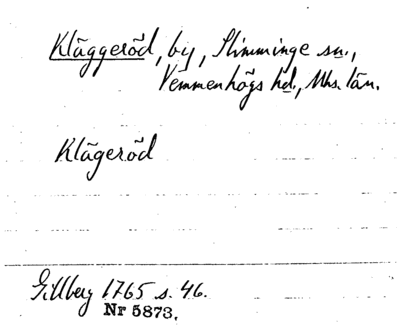 Kläggeröd, by, Slimminge sn.,
Vemmenhögs hd., Mhs. län.
Klägeröd
Gillberg 1765 s. 46.
Nr 5873.